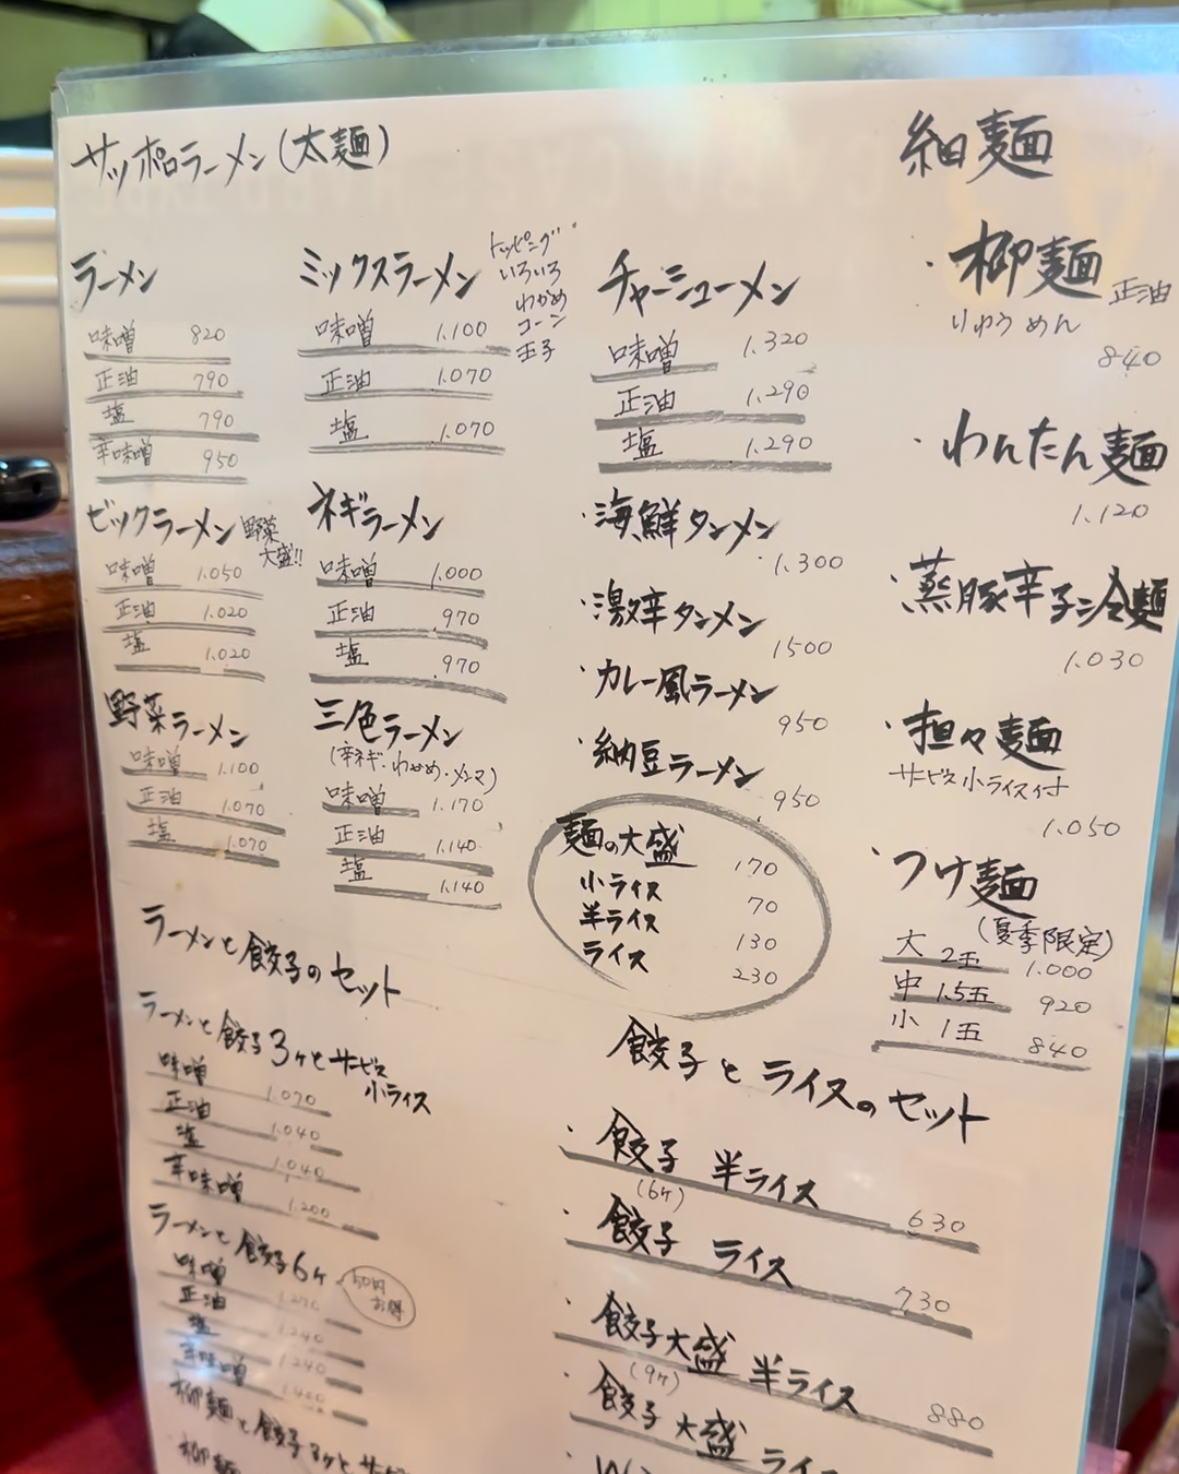 サッポロラーメン(太麺)
ラーメン
味噌 820
正油 790
塩 790
辛味噌 950
ビックラーメン 野菜大盛!!
味噌 1.050
正油 1.020
塩 1.020
野菜ラーメン
味噌 1.100
正油 1.070
塩 1.070
ミックスラーメン
トッピング
いろいろ
わかめ
コーン
玉子
味噌 1.100
正油 1.070
塩 1.070
ネギラーメン
味噌 1.000
正油 970
塩 970
三色ラーメン
(辛ネギ・わかめ・メンマ)
味噌 1.170
正油 1.140
塩 1.140
チャーシューメン
味噌 1.320
正油 1.290
塩 1.290
・海鮮タンメン
1.300
・激辛タンメン
1500
・カレー風ラーメン
950
・納豆ラーメン
950
麺の大盛 170
小ライス 70
半ライス 130
ライス 230
細麺
・柳麺 正油
りゅうめん
840
・わんたん麺
1.120
・蒸豚辛子冷麺
1.030
・担々麺
サービス小ライス付
1.050
・つけ麺
(夏季限定)
大 2玉 1.000
中 1.5玉 920
小 1玉 840
ラーメンと餃子のセット
ラーメンと餃子3ヶとサービス
小ライス
味噌 1.070
正油 1.040
塩 1.040
辛味噌 1.200
ラーメンと餃子6ヶ
50円
お得
味噌 1.270
正油 1.240
塩 1.240
辛味噌 1.400
柳麺と餃子3ヶとサー
柳麺
餃子とライスのセット
・餃子 半ライス
(6ヶ)
630
・餃子 ライス
730
・餃子大盛 半ライス
(9ヶ)
880
・餃子大盛 ライ